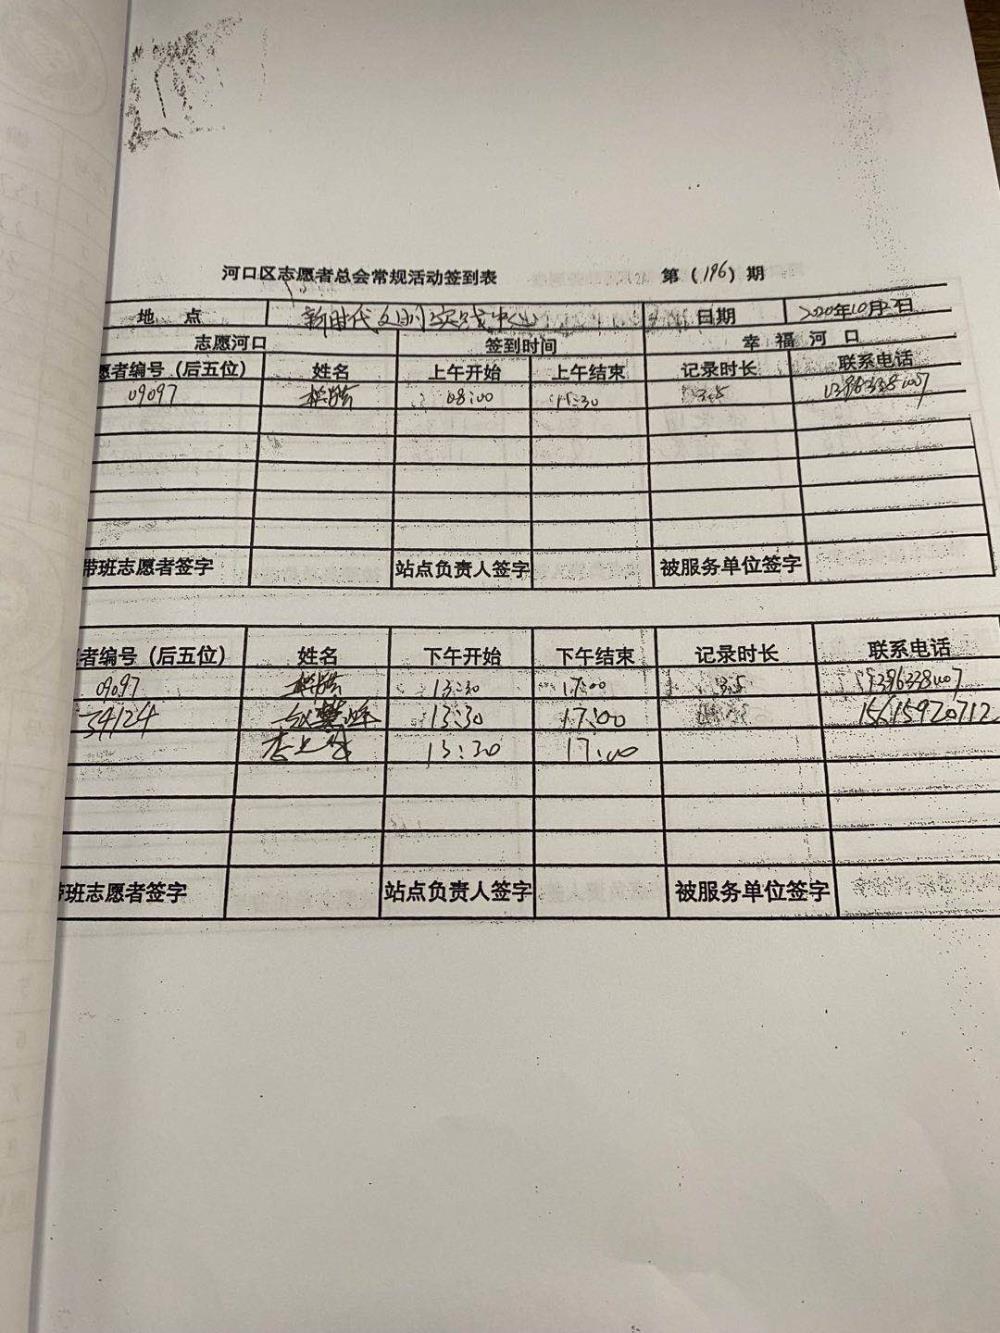 河口区志愿者总会常规活动签到表 第（196）期
地 点 新时代文明实践中心 日期 2020年10月22日
志愿河口 签到时间 幸 福 河 口
愿者编号（后五位） 姓名 上午开始 上午结束 记录时长 联系电话
09097 08:00 11:30 3.5
带班志愿者签字 站点负责人签字 被服务单位签字
者编号（后五位） 姓名 下午开始 下午结束 记录时长 联系电话
09097 13:30 17:00 3.5
34124 13:30 17:00 15615920712
13:30 17:00
带班志愿者签字 站点负责人签字 被服务单位签字